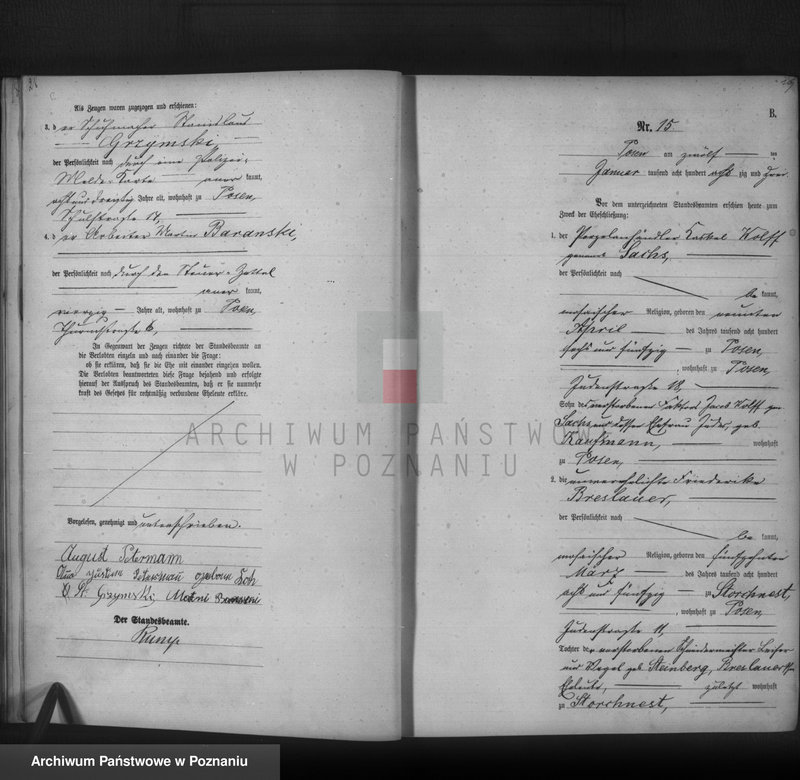 Als Zeugen waren zugezogen und erschienen:
3. der Schuhmacher Stanislaus
Grzymski,
der Persönlichkeit nach durch eine Polizei-
Melde-Karte anerkannt,
acht und dreißig Jahre alt, wohnhaft zu Posen,
Schulstraße 11,
4. der Arbeiter Martin Baranski,
der Persönlichkeit nach durch den Steuer-Zettel
anerkannt,
vierzig Jahre alt, wohnhaft zu Posen,
Thurmstraße 6,
In Gegenwart der Zeugen richtete der Standesbeamte an
die Verlobten einzeln und nach einander die Frage:
ob sie erklären, daß sie die Ehe mit einander eingehen wollen.
Die Verlobten beantworteten diese Frage bejahend und erfolgte
hierauf der Ausspruch des Standesbeamten, daß er sie nunmehr
kraft des Gesetzes für rechtmäßig verbundene Eheleute erkläre.
Vorgelesen, genehmigt und unterschrieben.
August Petermann
Petermann
St. Grzymski
Der Standesbeamte.
Rump
B.
Nr. 15.
Posen am zwölf ten
Januar tausend acht hundert achtzig und zwei.
Vor dem unterzeichneten Standesbeamten erschien heute zum
Zweck der Eheschließung:
1. der Porzelanhändler Kaskel Wolff
genannt Sachs,
der Persönlichkeit nach
bekannt,
mosaischer Religion, geboren den neunten
April des Jahres tausend acht hundert
sechs und fünfzig zu Posen,
, wohnhaft zu Posen,
Judenstraße 18,
Sohn des verstorbenen Faktor Jacob Wolff gen.
Sachs und dessen Ehefrau Judes, geb.
Kaufmann, wohnhaft
zu Posen,
2. die unverehelichte Friederike
Breslauer,
der Persönlichkeit nach
bekannt,
mosaischer Religion, geboren den fünfzehnten
März des Jahres tausend acht hundert
acht und fünfzig zu Storchnest,
, wohnhaft zu Posen,
Judenstraße 11,
Tochter der verstorbenen Schneidermeister Leiser
und Vogel geb. Steinberg, Breslauer'schen
Eheleute, zuletzt wohnhaft
zu Storchnest,
ARCHIWUM PAŃSTWOWE
W POZNANIU
Archiwum Państwowe w Poznaniu